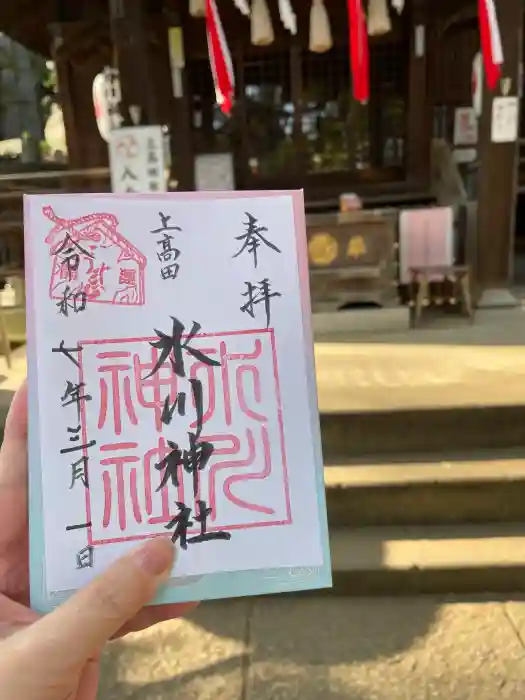 奉拝
上高田
氷川神社
氷川神社
令和七年三月一日